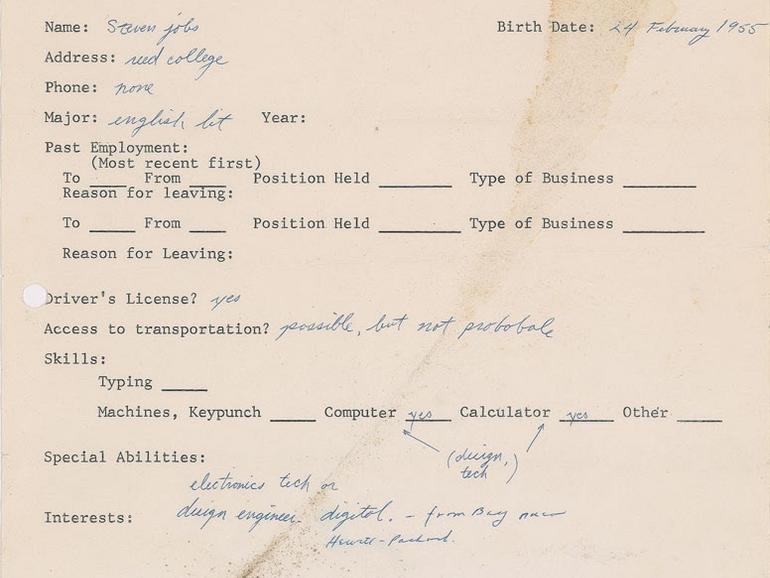 Name: Steven jobs Birth Date: 24 February 1955
Address: reed college
Phone: none
Major: english lit Year:
Past Employment:
(Most recent first)
To ____ From ____ Position Held ________ Type of Business ________
Reason for leaving:
To _____ From ____ Position Held _________ Type of Business _________
Reason for Leaving:
Driver's License? yes
Access to transportation? possible, but not probobale
Skills:
Typing _____
Machines, Keypunch _____ Computer yes Calculator yes Other _____
(design,
tech)
Special Abilities:
electronics tech or
Interests: design engineer digital. - from Bay near
Hewitt-Packard.